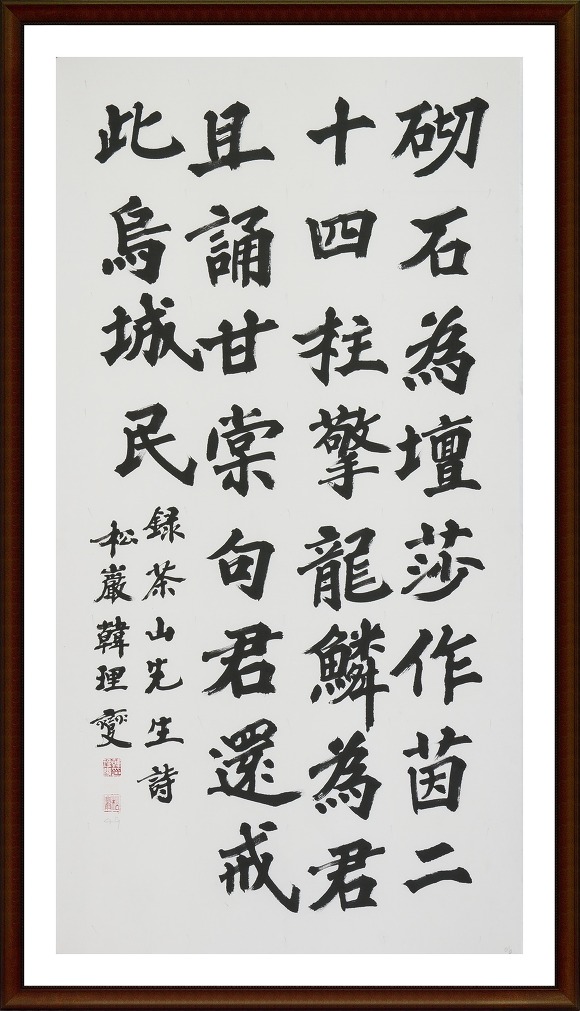 砌石為壇莎作茵二
十四柱擎龍鱗為君
且誦甘棠句君還戒
此烏城民
録茶山先生詩
松巖韓理燮